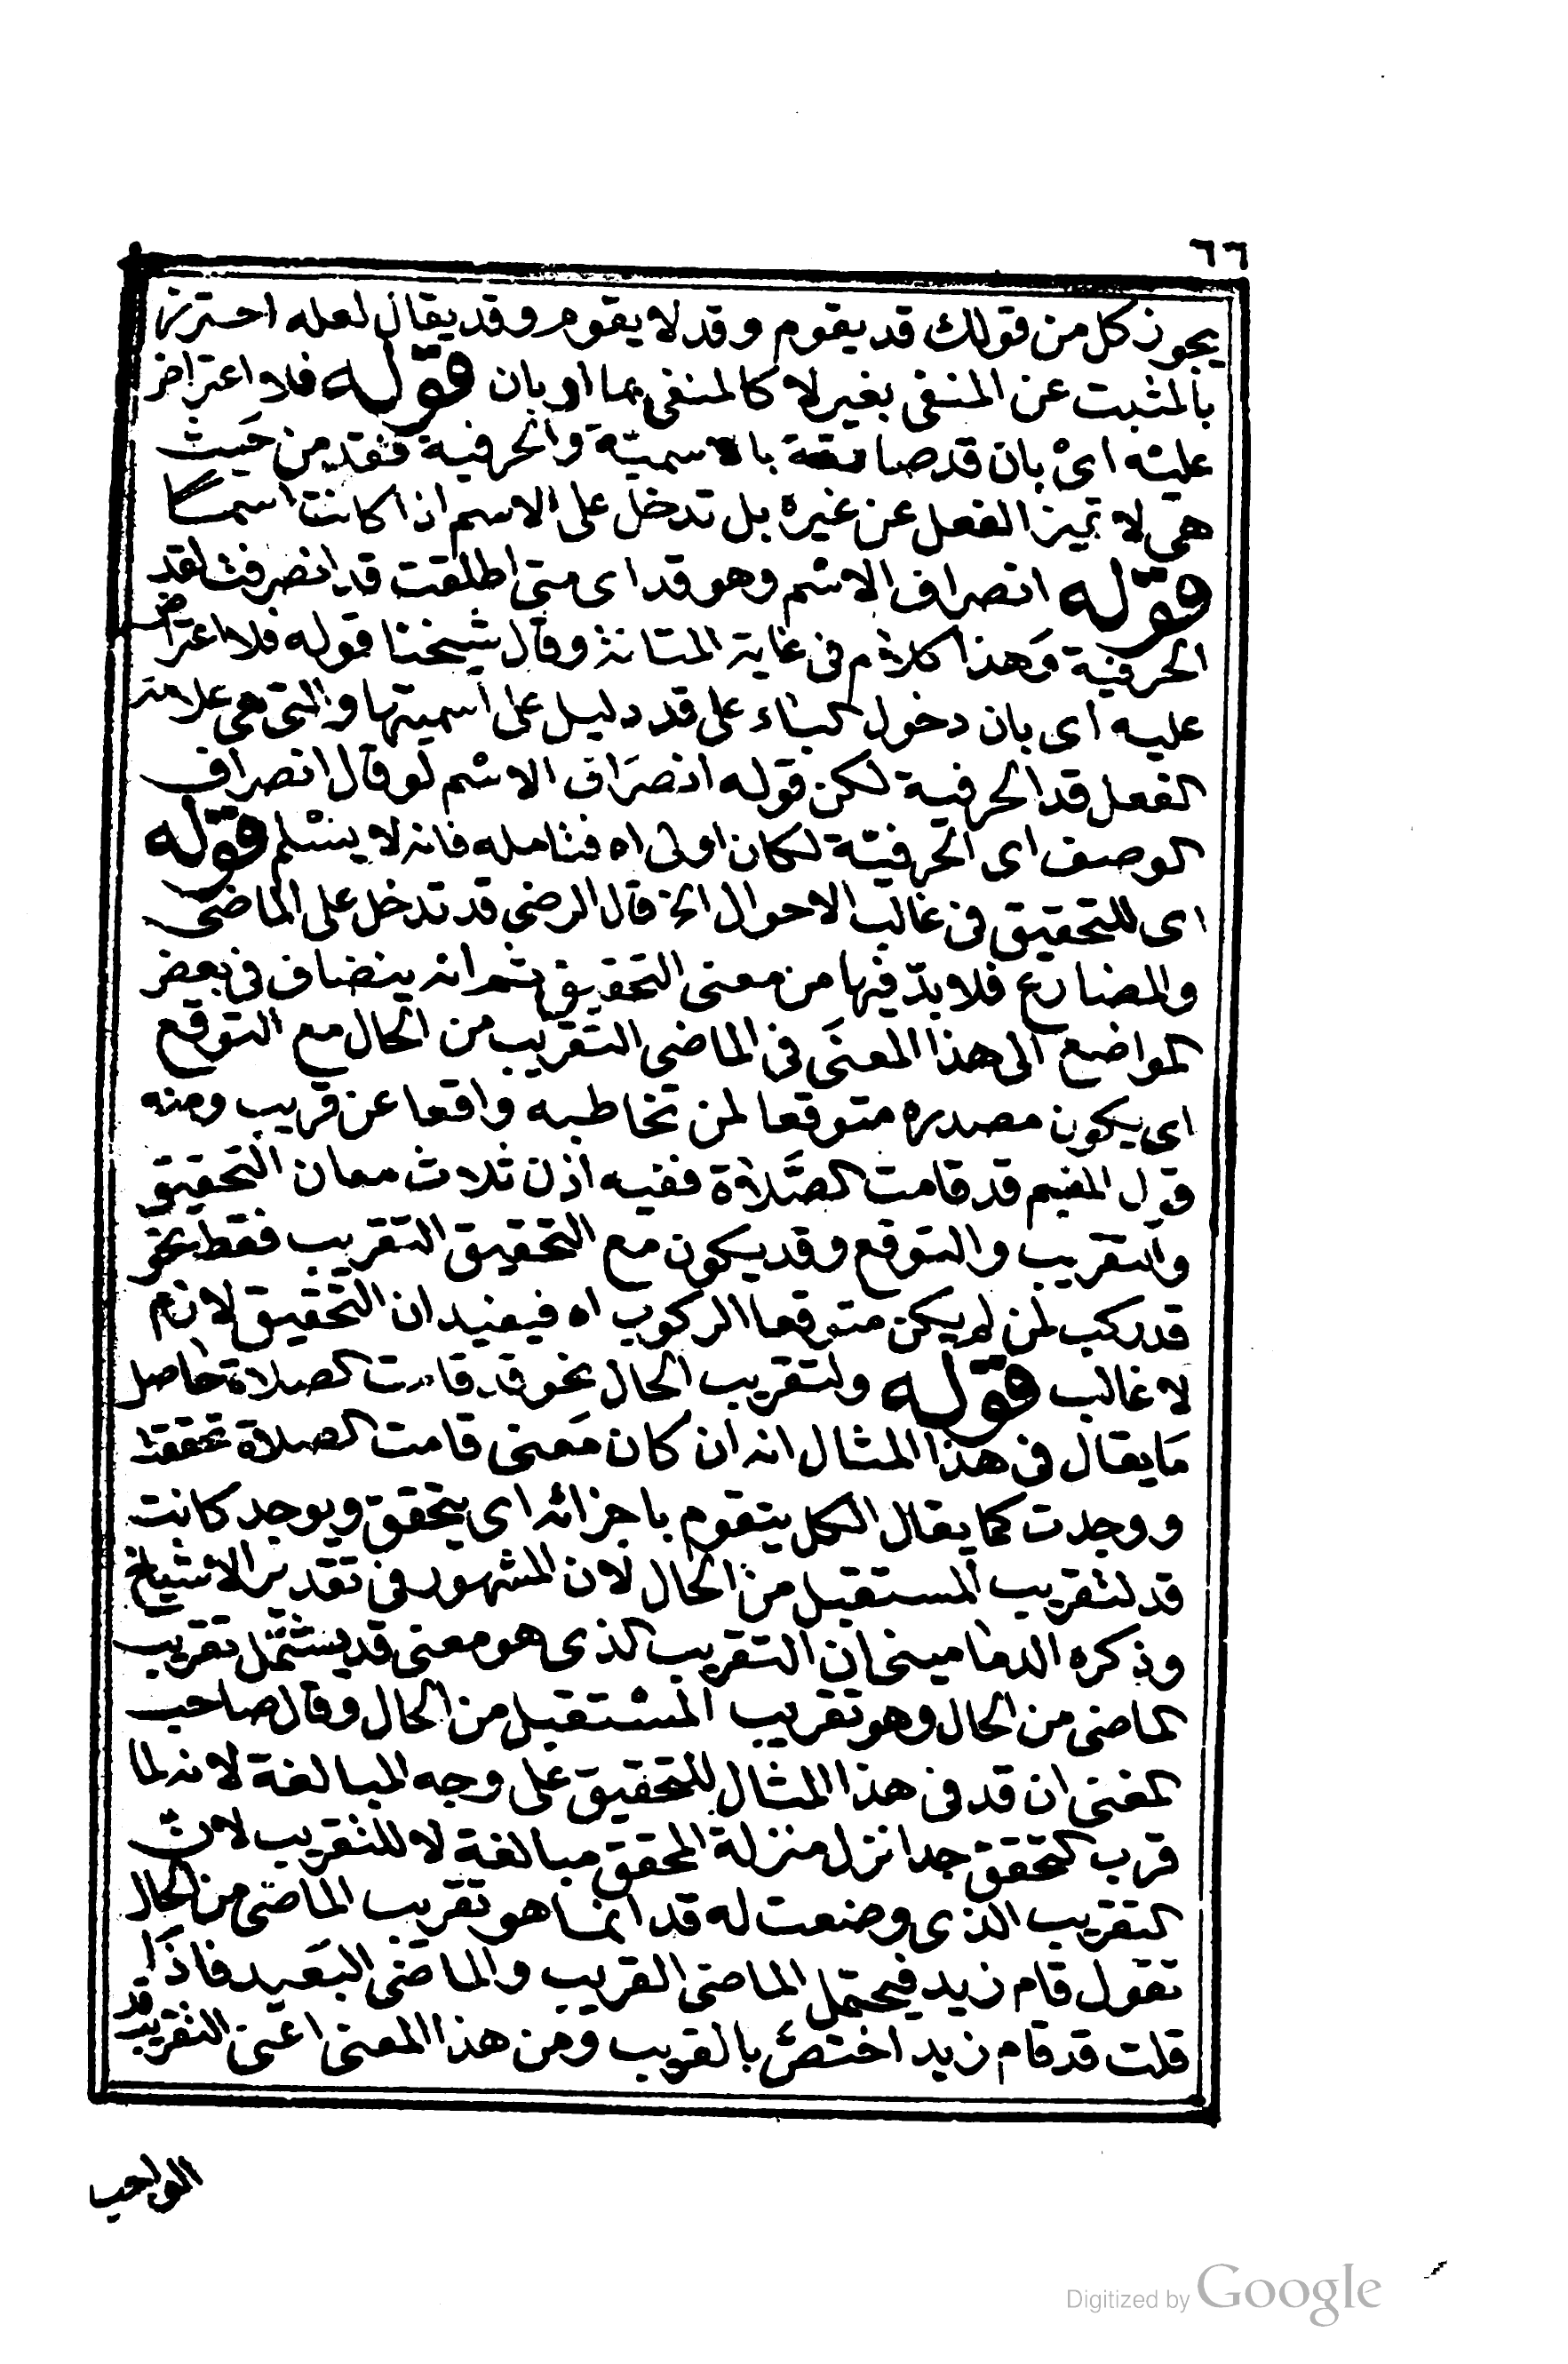 ٦٦
يجوز كل من قولك قد يقوم وقد لا يقوم وقد يقال لعله احترز
بالمثبت عن المنفى بغير لا كالمنفى بما او بان قوله فلا اعتراض
عليه اى بان قد صادقة بالاسمية والحرفية فقد من حيث
هى لا تميز الفعل عن غيره بل تدخل على الاسم اذا كانت اسما
قوله انصراف الاسم وهو قد اى متى اطلقت قد انصرفت لقد
الحرفية وهذا كلام فى غاية المتانة وقال شيخنا قوله فلا اعتراض
عليه اى بان دخول الباء على قد دليل على اسميتها والتى هى علامة
الفعل قد الحرفية لكن قوله انصراف الاسم لو قال انصراف
الوصف اى الحرفية لكان اولى اه فتامله فانه لا يسلم قوله
اى للتحقيق فى غالب الاحوال الخ قال الرضى قد تدخل على الماضى
والمضارع فلا بد فيها من معنى التحقيق ثم انه ينضاف فى بعض
المواضع الى هذا المعنى فى الماضى التقريب من الحال مع التوقع
اى يكون مصدره متوقعا لمن تخاطبه واقعا عن قريب ومنه
قول المقيم قد قامت الصلاة ففيه اذن ثلاث معان التحقيق
والتقريب والتوقع وقد يكون مع التحقيق التقريب فقط نحو
قد ركب لمن لم يكن متوقعا الركوب اه فيفيد ان التحقيق لازم
لا غالب قوله ولتقريب الحال نحو قد قامت الصلاة حاصل
ما يقال فى هذا المثال انه ان كان معنى قامت الصلاة تحققت
ووجدت كما يقال الكل يتقوم باجزائه اى يتحقق ويوجد كانت
قد لتقريب المستقبل من الحال لان المشهور فى تقدير الاشياخ
وذكره الدمامينى ان التقريب الذى هو معنى قد يشتمل تقريب
الماضى من الحال وهو تقريب المستقبل من الحال وقال صاحب
المغنى ان قد فى هذا المثال للتحقيق على وجه المبالغة لانه لما
قرب التحقق جدا نزل منزلة المحقق مبالغة لا للتقريب لان
التقريب الذى وضعت له قد انما هو تقريب الماضى من الحال
تقول قام زيد فيحتمل الماضى القريب والماضى البعيد فاذا
قلت قد قام زيد اختص بالقريب ومن هذا المعنى اعنى التقريب قد
الواجب
Digitized by Google